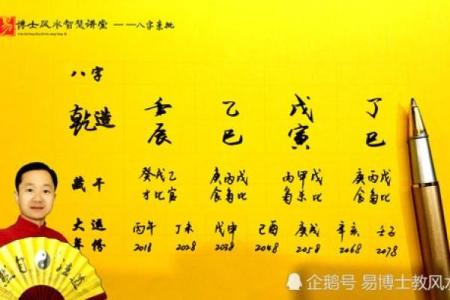 易 博士风水智慧讲堂 ——八字案批
八字
乾造 壬 乙 戊 丁
辰 巳 寅 巳
藏干 癸戊乙 庚丙戊 丙甲戊 庚丙戊
才比官 食枭比 枭杀比 食枭比
大运 丙午 丁未 戊申 己酉 庚戌 辛亥 壬子
年份 2018 2028 2038 2048 2058 2068 2078
企鹅号 易博士教风水